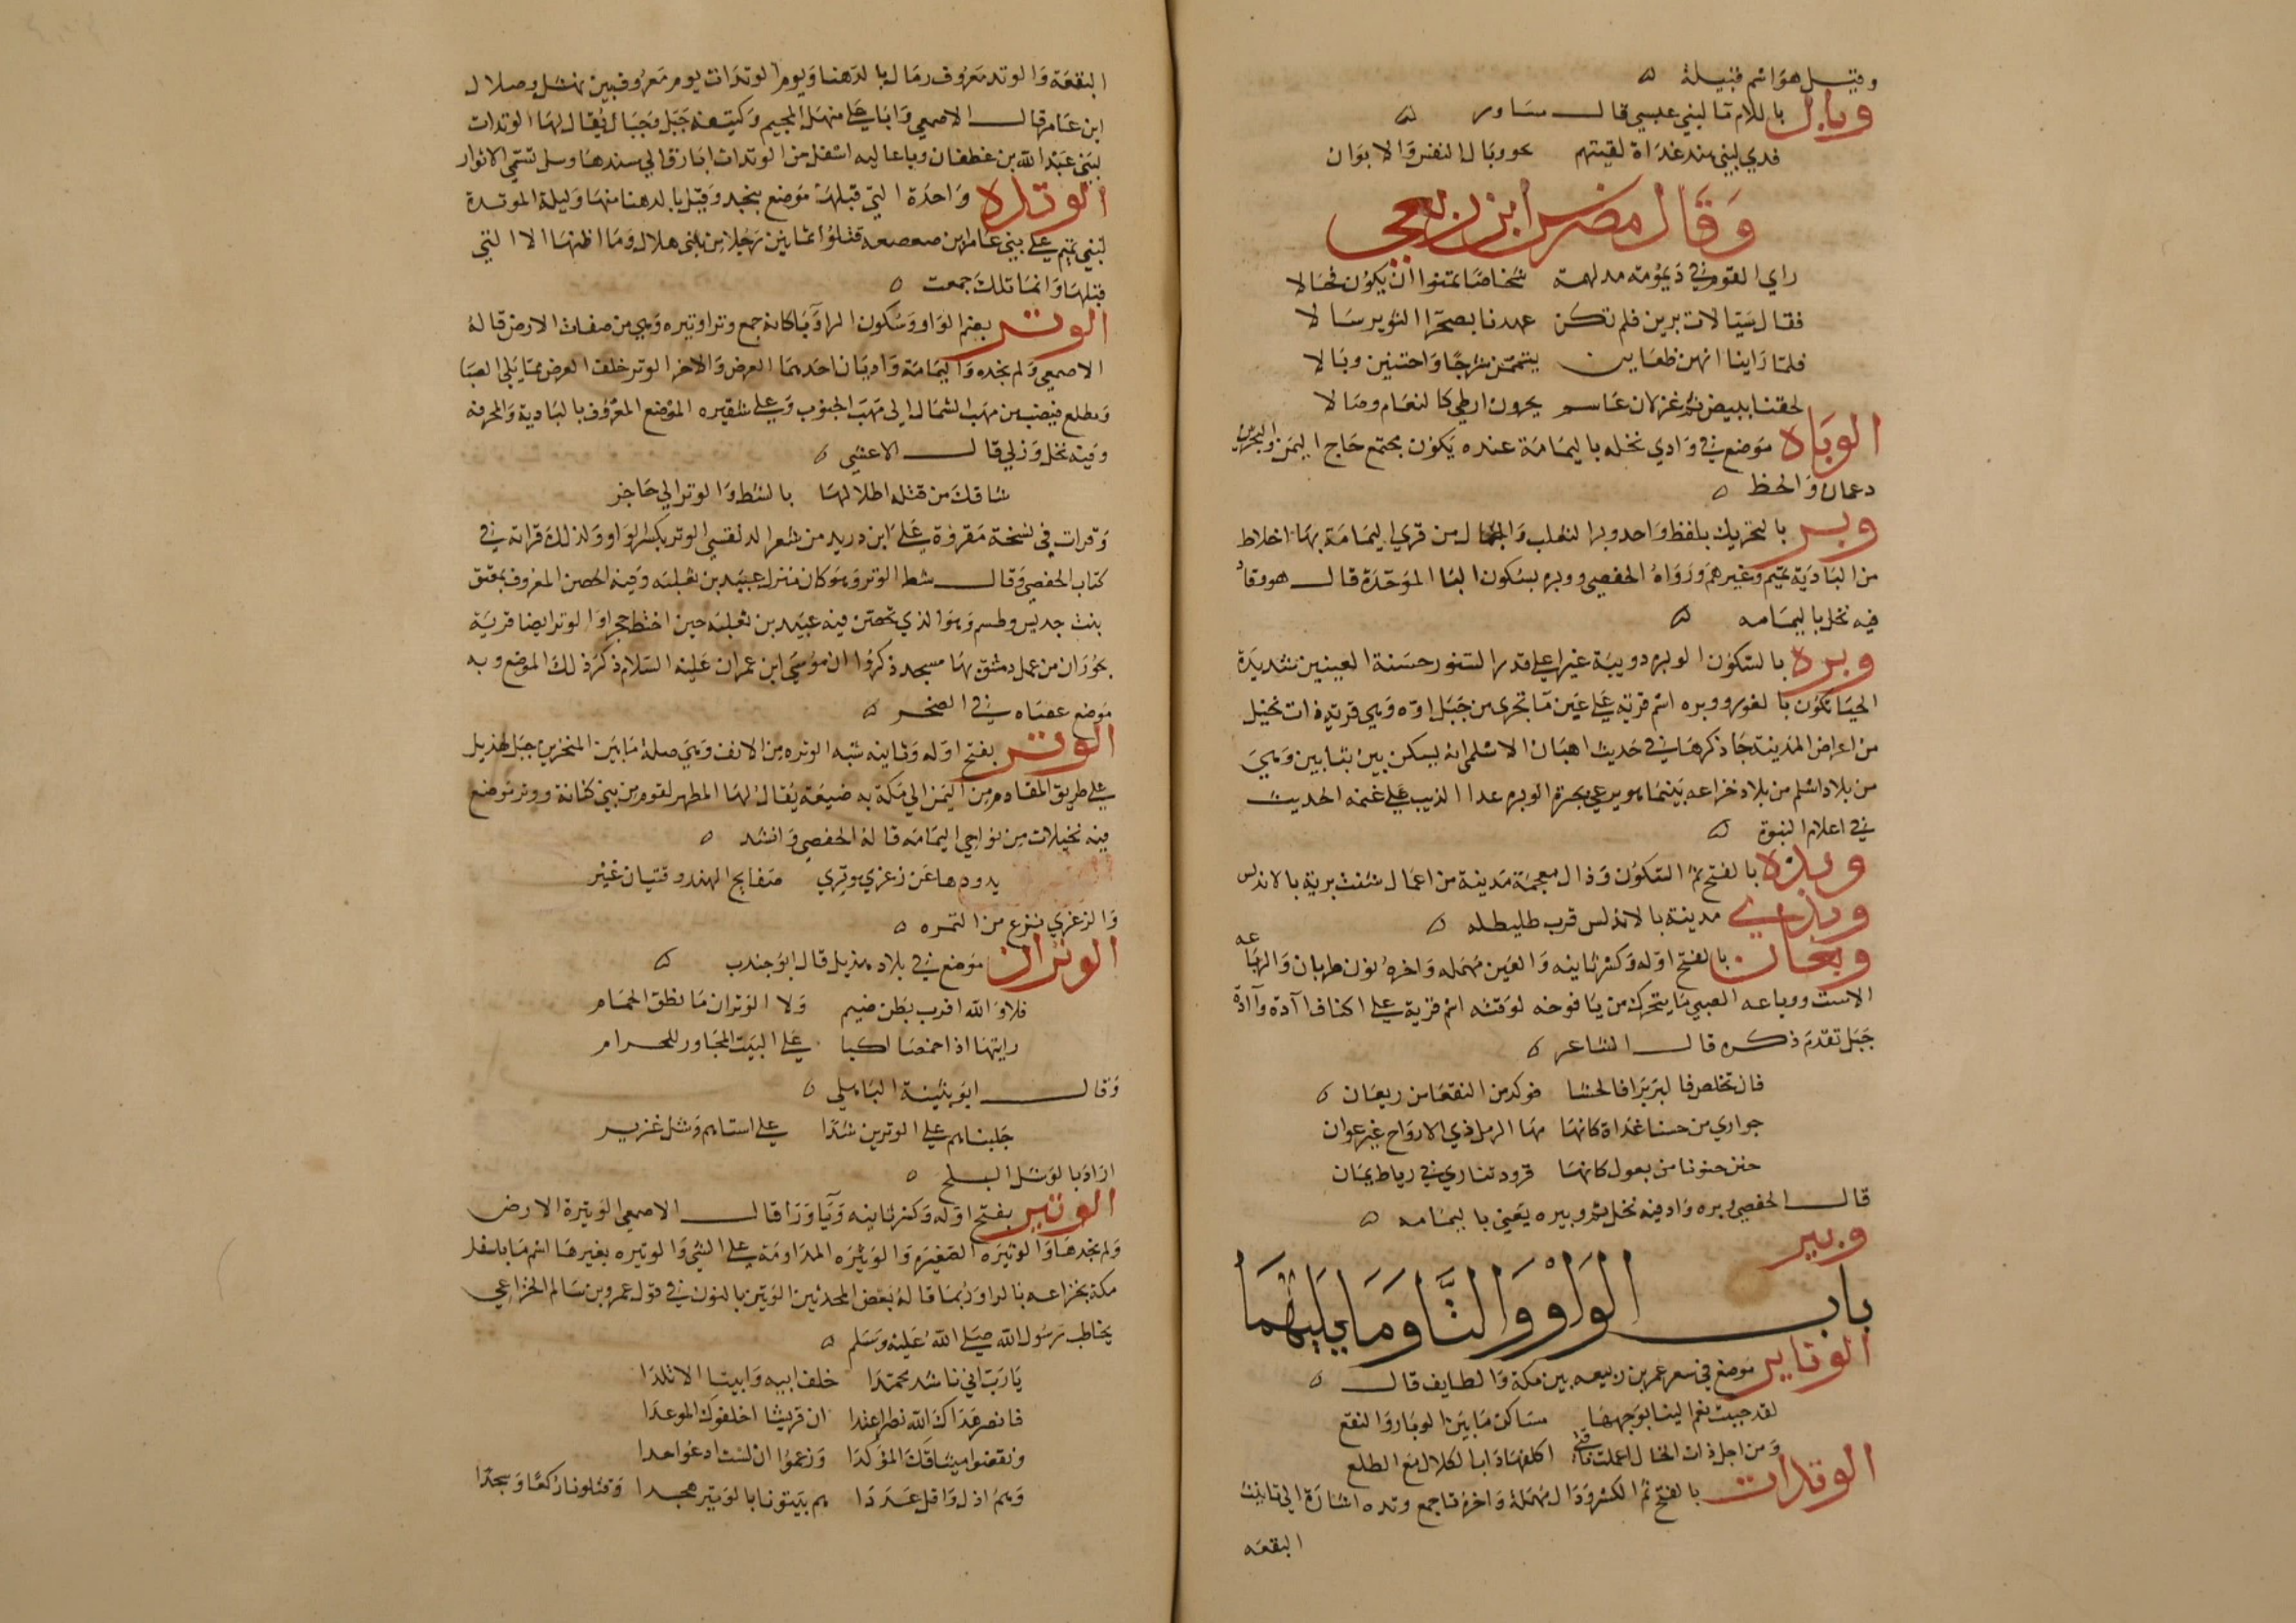 وقيل هو اسم قبيلة ه
وبال باللام ما لبني عبس قال مساور ه
فدي لبني هند غداة لقيتهم بجو وبال النفس والابوان
وقال مضرس ابن ربعي
راي القوم في ديمومة مدلهمة شخاصا تمنوا ان يكون فحالا
فقال سيالات يرين فلم تكن عهدنا بصحرا الثوير سالا
فلما راينا انهن ظعاين يتممن شرجا واجتنبن وبالا
لحقنا ببيض مثل غزلان عاسم يجرون ارطي كالنعام وصالا
الوباه موضع في وادي نخله باليمامة عنده يكون مجتمع حاج اليمن والبحرين
وعمان والخط ه
وبر بالتحريك بلفظ واحد وبر الثعلب والجمال من قري اليمامة بها اخلاط
من البادية تميم وغيرهم ورواه الحفصي ووبره بسكون البا الموحدة قال هو وقاد
فيه نخل باليمامه ه
وبره بالسكون الوبره دويبة غبرا علي قدر السنور حسنة العينين شديدة
الحيا تكون بالغور ووبره اسم قرية علي عين ما تجري من جبل اره وهي قرية ذات نخيل
من اعراض المدينة جا ذكرها في حديث اهبان الاسلمي انه يسكن يين بتايين وهي
من بلاد اسلم من بلاد خزاعه بينما هو يرعي بحرة الوبره عدا الذيب علي غنمه الحديث
في اعلام النبوة ه
وبذه بالفتح ثم السكون وذال معجمة مدينة من اعمال شنت برية بالاندلس
وبذي مدينة بالاندلس قرب طليطله ه
وبعان بالفتح اوله وكسر ثانيه والعين مهمله واخره نون ظربان والوباعه
الاست ووباعه الصبي ما يتحرك من يافوخه لوقته اسم قرية علي اكناف اآدة وآادة
جبل تقدم ذكره قال الشاعر ه
فان تخلص فالبريرا فالحشا فوكد من النقعا من وبعان ه
جواري من حسنا غداة كانها مها الرمل ذي الارواح غير عوان
جنن جنونا من بعول كانها قرود تناري في رياط يمان
قال الحفصي وبره واد فيه نخل ثم وبيره يعني باليمامه ه
وبير
باب الواو والتا وما يليهما
الوتاير موضع في شعر عمر بن ربيعه بين مكة والطايف قال ه
لقد حببت نعم الينا بوجهها مساكن ما بين الوبار والنقع
ومن اجل ذات الخال اعملت ناقتي اكلفها داب الكلال مع الظلع
الوتدات بالفتح ثم الكسر ودال مهملة واخره تا جمع وتده اشارة الي تانيث
البقعه
البقعة والوتد معروف رمال بالدهنا ويوم الوتدات يوم معروف بين نهشل وهلال
ابن عامر قال الاصمعي وباعلي منهل المجيم وكتيفه جبل وجبال يقال لها الوتدات
لبني عبد الله بن غطفان وباعاليه اسفل من الوتدات ابارق الي سندها وسل تسمي الاثوار
الوتده واحدة التي قبلها موضع بنجد وقيل بالدهنا منها وليلة الموتدة
لبني تميم علي بني عامر بن صعصعه قتلوا ثمانين رجلا من بني هلال وما اظنها الا التي
قبلها وانما تلك جمعت ه
الوتر بضم الواو وسكون الرا ويا كانه جمع وتر او وتيره وهي من صفات الارض قاله
الاصمعي ولم يحده واليمامة واديان احدهما العرض والاخر الوتر خلف العرض مما يلي الصبا
ومطلع فينصب من مهب الشمال الي مهب الجنوب وعلي شفيره الموضع المعروف بالبادية والمحرفه
وفيه نخل وزلي قال الاعشي ه
شاقك من قتله اطلالها بالشط والوتر الي حاجر
وقرات في نسخة مقروة علي ابن دريد من شعر الاعشي الوتر بكسر الواو ولذلك قراته في
كتاب الحفصي وقال شط الوتر وهو كان منزل عبيد بن ثعلبه وفيه الحصن المعروف بمعنق
بنت جديس وطسم وهو الذي تحصن فيه عبيد بن ثعلبه حين اختط حجرا والوتر ايضا قرية
بحوران من عمل دمشق بها مسجد ذكروا ان موسي ابن عمران عليه السلام ذكر ذلك الموضع وبه
موضع عصاه في الصخر ه
الوتر بفتح اوله وثانيه شبه الوتره من الانف وهي صلة ما بين المنخرين جبل لهذيل
علي طريق القادم من اليمن الي مكة به ضيعة يقال لها المطهر لقوم من بني كنانة ووتر موضع
فيه نخيلات من نواحي اليمامه قاله الحفصي وانشد ه
يدودها عن زعري بوتري صفايح الهند وفتيان غير
والزعري نوع من التمره ه
الوتران موضع في بلاد هذيل قال ابو جندب ه
فلا والله اقرب بطن ضيم ولا الوتران ما نطق الحمام
رايتها اذا احمصا اكبا علي البيت المجاور للحرام
وقال ابو بثينة الباهلي ه
جلبناهم علي الوترين شدا علي استاهم وشل غزير
اراد بالوشل السلح ه
الوتير بفتح اوله وكسر ثانيه ويا ورا قال الاصمعي الوتيرة الارض
ولم يحدها والوتيره الصغيره والوتيره المداومة علي الشي والوتيره بغير ها اسم ما باسفل
مكة بخزاعه بالرا وربما قاله بعض المحدثين الوتين بالنون في قول عمرو بن سالم الخزاعي
يخاطب رسول الله صلي الله عليه وسلم ه
يا رب اني ناشد محمدا خلف ابيه وابينا الاتلدا
فانصر هداك الله نصرا عتدا ان قريشا اخلفوك الموعدا
ونقضوا ميثاقك المؤكدا وزعموا ان لست ادعو احدا
وهم اذل واقل عددا هم بيتونا بالوتير هجدا وقتلونا ركعا وسجدا